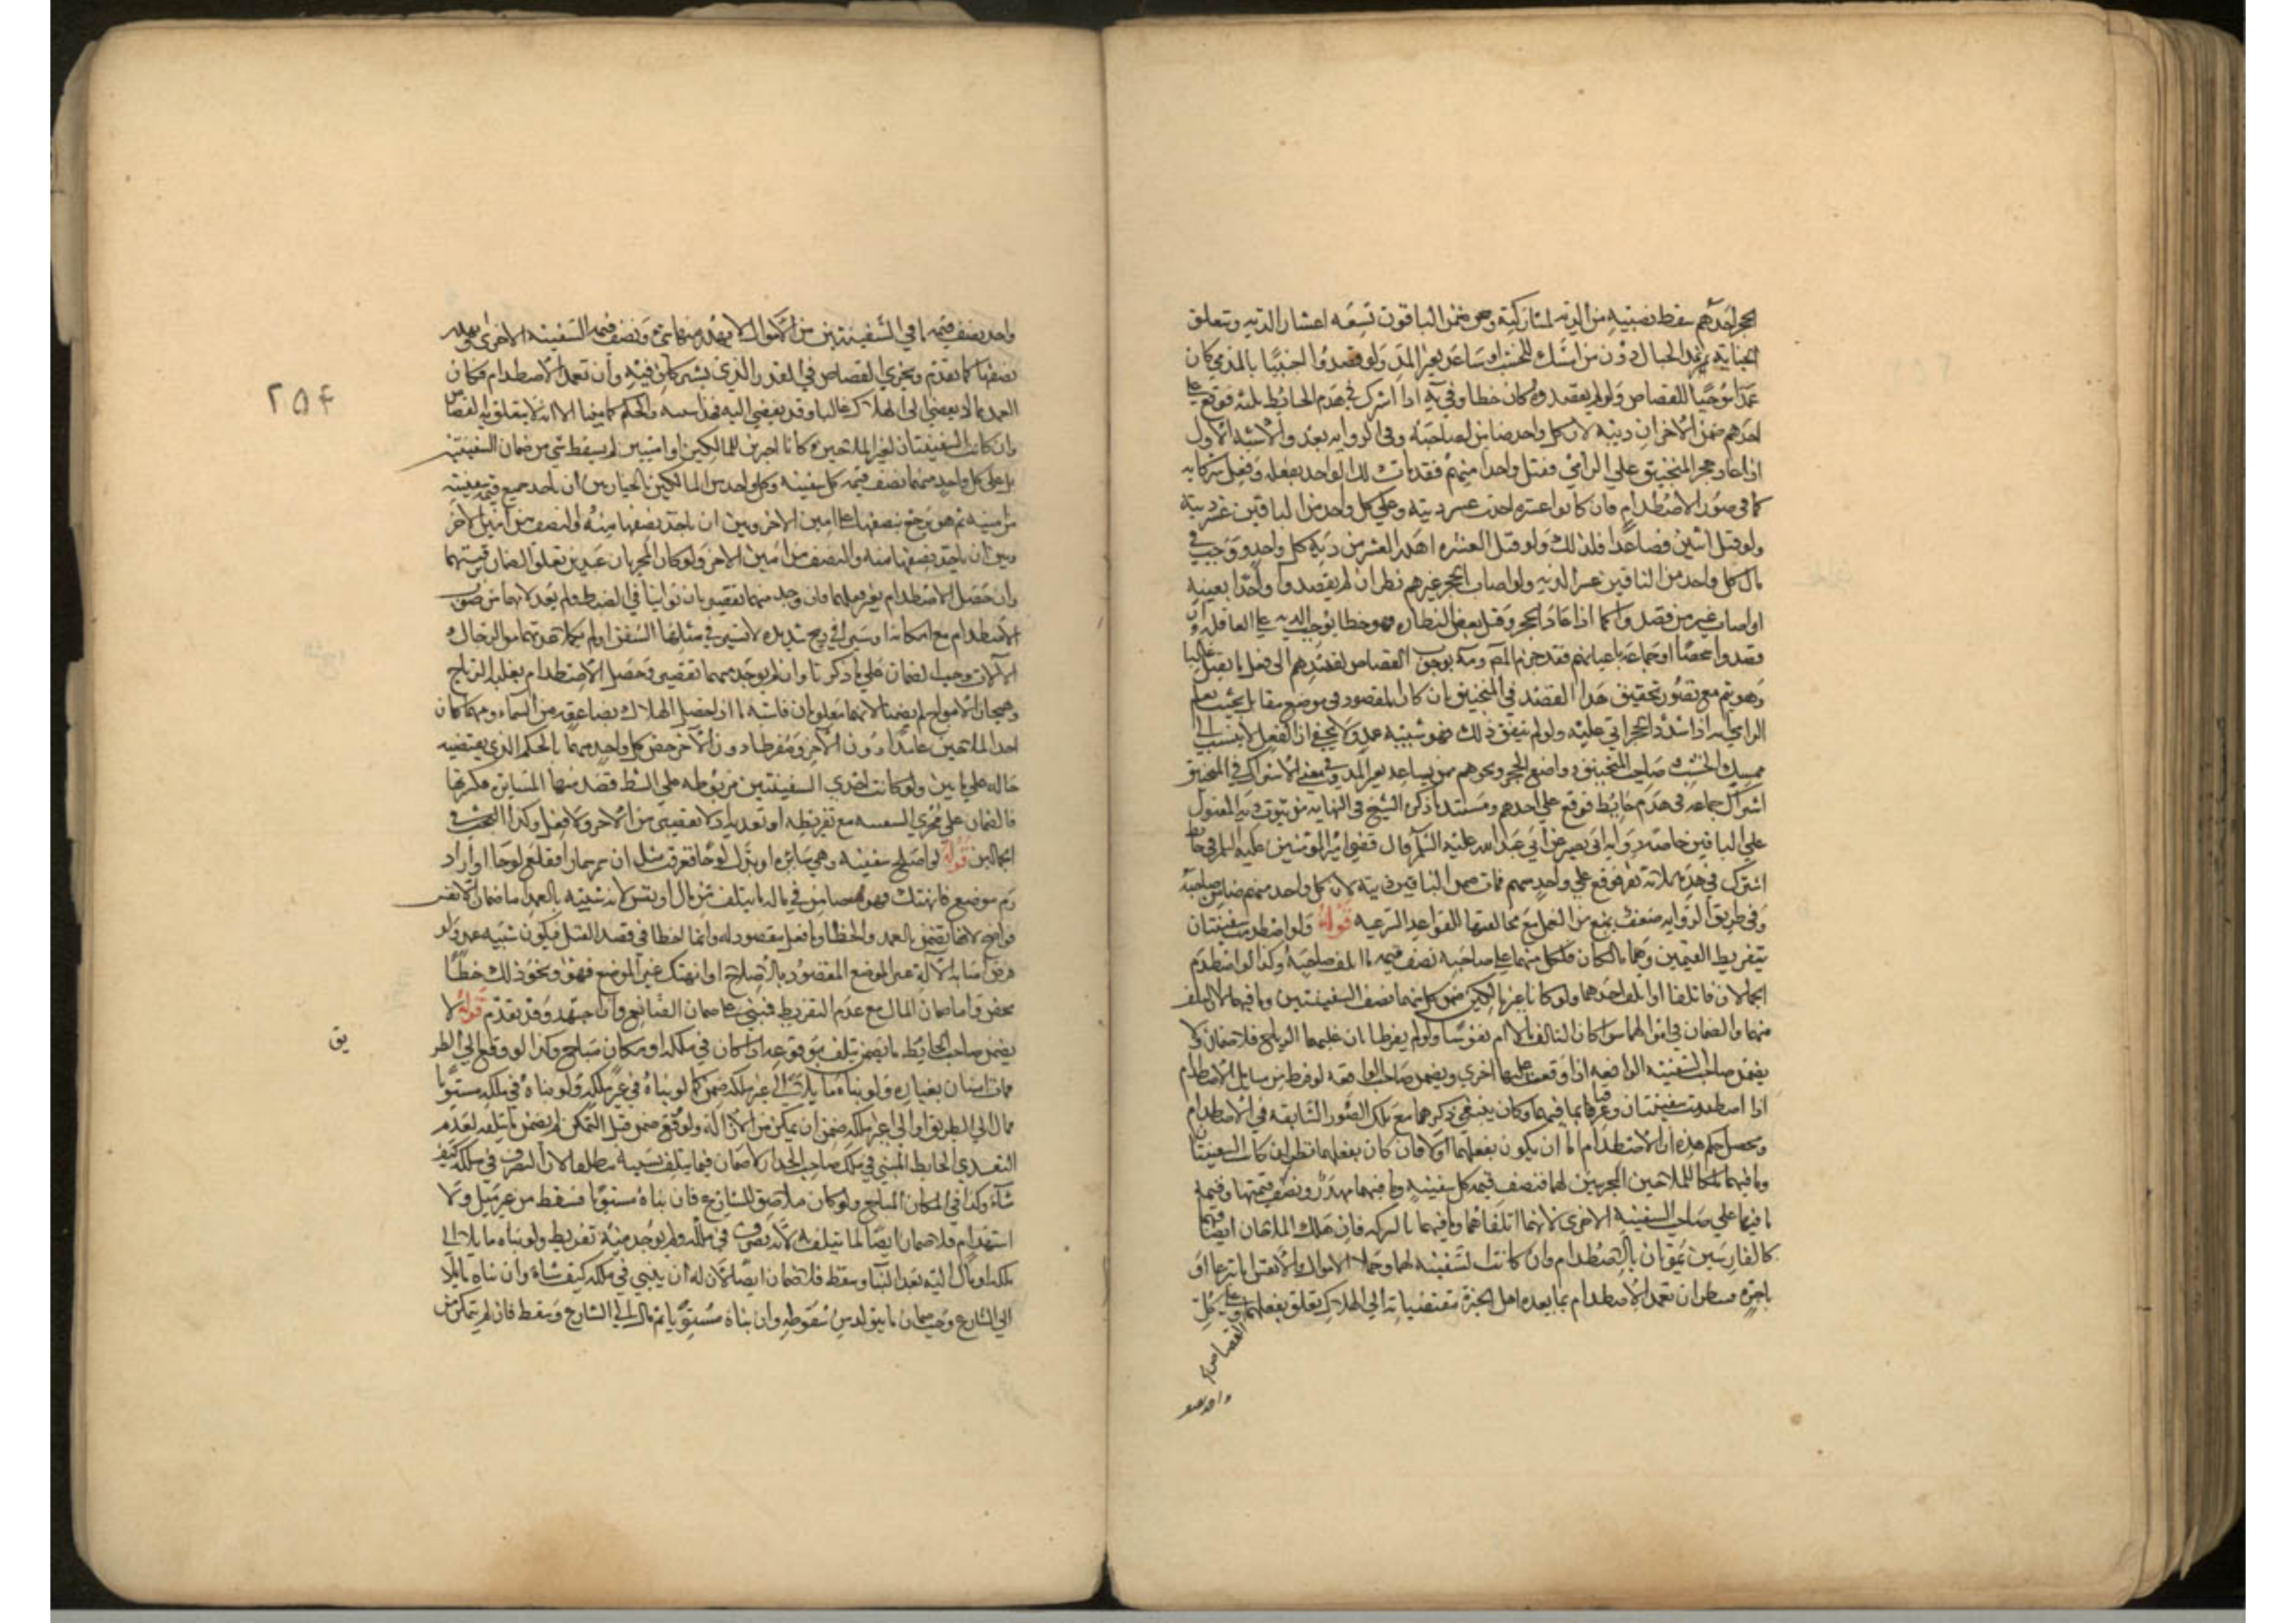 الحجر أحدهم سقط نصيبه من الدية لمشاركته وضمن الباقون تسعة أعشار الدية وتتعلق
الجناية بمن مد الحبال دون من أمسك الخشب أو ساعد بغير المد ولو قصدوا أجنبيا بالرمي كان
عمدا موجبا للقصاص ولو لم يقصدوه كان خطأ وفي إذا اشترك في هدم الحائط ثلثة فوقع على
أحدهم ضمن الآخران ديته لأن كل واحد ضامن لصاحبه وفي الرواية بعد والأشبه الأول
إذا عاد حجر المنجنيق على الرامي فقتل واحدا منهم فقد مات ذلك الواحد بفعله وفعل شركائه
كما في صور الاصطدام فان كانوا عشرة عشر ديته وعلى كل واحد من الباقين عشر ديته
ولو قتل اثنين فصاعدا فكذلك ولو قتل العشرة أهدر العشر من دية كل واحد ووجب في
مال كل واحد من الباقين عشر الدية ولو أصاب الحجر غيرهم نظر ان لم يقصدوا واحدا بعينه
أو أصاب غير من قصدوا كما إذا عاد الحجر وقتل بعض النظارة فهو خطأ يوجب الدية على العاقلة وإن
قصدوا شخصا أو جماعة بأعيانهم فقد جزم المصـ ره بوجوب القصاص لقصدهم إلى فعل ما يقتل غالبا
وهو يتم مع تصور تحقيق هذا القصد في المنجنيق بان كان المقصود في موضع مقابل بحيث يعلم
الرامي انه إذا سدد الحجر أتى عليه ولو لم يتفق ذلك فهو شبيه عمد ولا يخفى ان الفعل لا ينسب إلى
ممسك الخشب وصاحب المنجنيق وواضع الحجر ونحوهم ممن يساعد بغير المد وفي معنى الاشتراك في المنجنيق
اشتراك جماعة في هدم حائط فوقع على أحدهم ومستند ما ذكره الشيخ في النهاية من ثبوت دية المقتول
على الباقين خاصة رواية أبي بصير عن أبي عبد الله عليه السلام قال قضى أمير المؤمنين عليه السلام في حائط
اشترك في هدمه ثلاثة نفر فوقع على واحد منهم فمات ضمن الباقين ديته لأن كل واحد منهم ضامن صاحبه
وفي طريق الرواية ضعف يمنع من العمل مع مخالفتها للقواعد الشرعية قوله ولو اصطدمت سفينتان
بتفريط القيمين وهما مالكان فلكل منهما على صاحبه نصف قيمة ما أتلف صاحبه وكذا لو اصطدم
الحمالان فاتلفا أو أتلف أحدهما ولو كانا غير مالكين ضمن كل منهما نصف السفينتين وما فيهما لأن التلف
منهما والضمان في أموالهما سواء كان التالف مالا أم نفوسا ولو لم يفرطا بان غلبتهما الرياح فلا ضمان ولا
يضمن صاحب السفينة الواقفة إذا وقعت عليها أخرى ويضمن صاحب الواقعة لو فرط من مسايل الاصطدام
إذا اصطدمت سفينتان وغرقتا بما فيهما وكان ينبغي ذكرهما مع تلك الصور السابقة في الاصطدام
ومحصل حكم هذه ان الاصطدام اما ان يكون بفعلهما أو لا فان كان بفعلهما نظر ان كانت السفينتان
وما فيهما ملكا للملاحين المجريين لهما فنصف قيمة كل سفينة وما فيهما مهدر ونصف قيمتها وقيمة
ما فيها على صاحب السفينة الأخرى لأنهما أتلفاهما وما فيهما بالشركة فان هلك الملاحان أيضا فهما
كالفارسين يموتان بالاصطدام وان كانت السفينة لهما وحملا الأموال والأنفس تبرعا أو
بأجرة فينظر ان تعمدا الاصطدام بما يعده أهل الخبرة مقتضيا إلى الهلاك تعلق بفعلهما القصاص وعلى كل
واحد نصف
واحد نصف قيمة ما في السفينتين من الأموال لا يهدر منها شيء ونصف قيمة السفينة الأخرى ويهدر
نصفها كما تقدم ويجري القصاص في القدر الذي يشتركان فيه وان تعمدا الاصطدام فكان
العمد مما لا يفضي إلى الهلاك غالبا وقد يفضي إليه فهذا شبيه والحكم كما بينا الا انه لا يتعلق به القصاص
وان كانت السفينتان لغير الملاحين وكانا أجيرين للمالكين أو أمينين لم يسقط شيء من ضمان السفينتين
بل على كل واحد منهما نصف قيمة كل سفينة وكل واحد من المالكين بالخيار بين ان يأخذ جميع قيمة سفينته
من أمينه ثم هو يرجع بنصفها على أمين الآخر وبين ان يأخذ نصفها منه والنصف من أمين الآخر
وبين ان يأخذ نصفها منه والنصف من أمين الآخر ولو كان المجريان عبدين تعلق الضمان برقبتهما
وان حصل الاصطدام بغير فعلهما فان وجد منهما تقصير بان توانيا في الضبط ولم يعدلاهما من صوب
الاصطدام مع إمكانه أو سيرا في ريح شديدة لا تسير في مثلها السفن أو لم يكملا عدتهما من الرجال و
الآلات وجب الضمان على ما ذكرنا وان لم يوجد منهما تقصير وحصل الاصطدام بغلبة الرياح
وهيجان الأمواج لم يضمنا لأنهما مغلوبان فأشبه ما إذا حصل الهلاك بصاعقة من السماء ومهما كان
أحد الملاحين عامدا دون الآخر ومفرطا دون الآخر خص كل واحد منهما بالحكم الذي يقتضيه
حاله على ما بين ولو كانت إحدى السفينتين مربوطة على الشط فصدمتها السائرة فكسرتها
فالضمان على مجري السفينة مع تفريطه أو تعديه ولا تقصير من الآخر ولا فعل وكذا البحث في
الحمالين قوله لو أصلح سفينة وهي سائرة أو بدل لوحا فغرقت مثل ان سمر مسمارا فقلع لوحا أو أراد
رم موضع فانهتك فهو ضامن في ماله ما يتلف من مال أو نفس لأنه شبيه بالعمد أما ضمان الأنفس
فواضح لأنها تضمن بالعمد والخطأ وما فعله مقصود له وانما اخطأ في قصد القتل فيكون شبيه عمد ولو
فرض إصابة الآلة غير الموضع المقصود بالإصلاح أو انهتك غير الموضع فهو ونحو ذلك خطأ
محض وأما ضمان المال مع عدم التفريط فمبني على ضمان الصانع وان اجتهد وقد تقدم قوله لا
يضمن صاحب الحائط ما يضمن بتلف بوقوعه إذا كان في ملكه أو مكان مباح وكذا لو وقع إلى الطر
يق
فمات إنسان بغباره ولو بناه مائلا إلى غير ملكه ضمن كما لو بناه في غير ملكه ولو بناه في ملكه مستويا
فمال إلى الطريق أو إلى غير ملكه ضمن ان تمكن من الإزالة ولو وقع قبل التمكن لم يضمن ما يتلف لعدم
التعدي الحائط المبني في ملك صاحب الجدار لا ضمان فيما يتلف بسببه مطلقا لأن له التصرف في ملكه كيف
شاء وكذا في المكان المباح ولو كان ملاصق الشارع فان بناه مستويا فسقط من غير ميل ولا
استهدام فلا ضمان أيضا لما يتلف لأنه تصرف في ملكه ولم يوجد منه تفريط ولو بناه مائلا إلى
ملكه أو مال إليه بعد البناء وسقط فلا ضمان أيضا لأن له ان يبني في ملكه كيف شاء وان بناه مايلا
إلى الشارع وجب ضمان ما يتولد من سقوطه وان بناه مستويا ثم مال إلى الشارع وسقط فان لم يتمكن من
۲۵۴